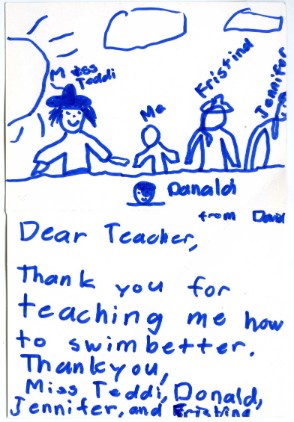 Miss
Teddi
Me
Fristina
Jennifer
Danald
from David
Dear Teacher,
Thank you for
teaching me how
to swim better.
Thankyou,
Miss Teddi, Donald,
Jennifer, and Fristina